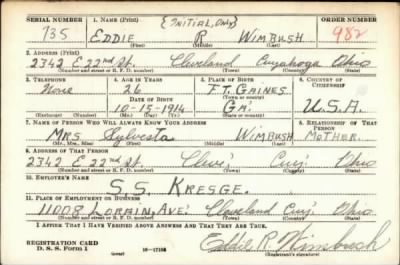 SERIAL NUMBER 1. NAME (Print) {INITIAL, ONLY} ORDER NUMBER
735 EDDIE R WIMBUSH 982
(First) (Middle) (Last)
2. ADDRESS (Print)
2342 E 22nd St. Cleveland Cuyahoga Ohio
(Number and street or R. F. D. number) (Town) (County) (State)
3. TELEPHONE 4. AGE IN YEARS 5. PLACE OF BIRTH 6. COUNTRY OF CITIZENSHIP
None 26 FT. GAINES
DATE OF BIRTH (Town or county)
10-15-1914 Ga. U.S.A.
(Exchange) (Number) (Mo.) (Day) (Yr.) (State or country)
7. NAME OF PERSON WHO WILL ALWAYS KNOW YOUR ADDRESS 8. RELATIONSHIP OF THAT PERSON
MRS Sylvesta WIMBUSH MOTHER.
(Mr., Mrs., Miss) (First) (Middle) (Last)
9. ADDRESS OF THAT PERSON
2342 E 22nd St. Cleve. Cuy. Ohio
(Number and street or R. F. D. number) (Town) (County) (State)
10. EMPLOYER'S NAME
S. S. KRESGE.
11. PLACE OF EMPLOYMENT OR BUSINESS
11008 LORAIN, AVE. Cleveland Cuy. Ohio.
(Number and street or R. F. D. number) (Town) (County) (State)
I AFFIRM THAT I HAVE VERIFIED ABOVE ANSWERS AND THAT THEY ARE TRUE.
REGISTRATION CARD
D. S. S. Form 1 (over) 16-17105 Eddie R. Wimbush
(Registrant's signature)